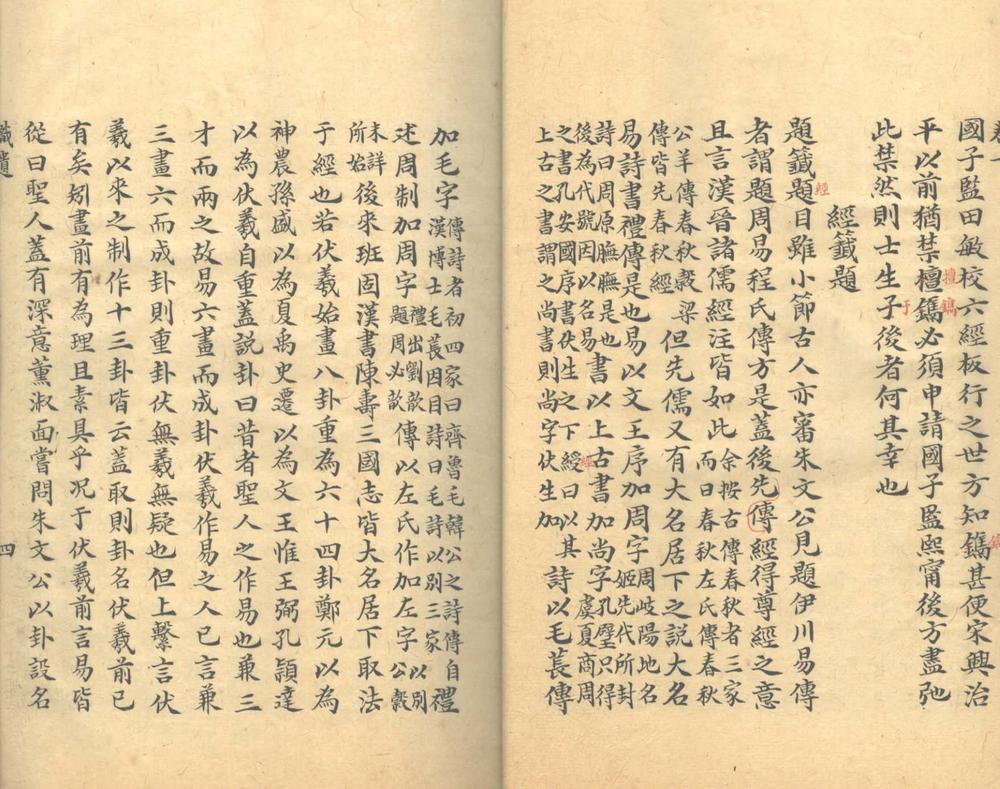 國子監田敏校六經板行之世方知鐫甚便宋興治
平以前猶禁擅鐫必須申請國子監熙甯後方盡弛
此禁然則士生子後者何其幸也
于
擅鐫
經籤題
經
題籤題目雖小節古人亦審朱文公見題伊川易傳
者謂題周易程氏傳方是蓋後先傳經得尊經之意
且言漢晉諸儒經注皆如此余按古傳春秋者三家而曰春秋左氏傳春秋
公羊傳春秋穀梁傳皆先春秋經但先儒又有大名居下之說大名
易詩書禮傳是也易以文王序加周字周岐陽地名姬先代所封
詩曰周原膴膴是也後為代號因以名易書以上古書加尚字虞夏商周孔壁只得
之書孔安國序書伏生之下曰以其上古之書謂之尚書則尚字伏生加詩以毛萇傳
加毛字傳詩者初四家曰齊魯毛韓公之詩傳自漢博士毛萇因目詩曰毛詩以別三家禮
述周制加周字禮出劉歆題周必歆傳以左氏作加左字以別公穀
未詳所始後來班固漢書陳壽三國志皆大名居下取法
于經也若伏羲始畫八卦重為六十四卦鄭元以為
神農孫盛以為夏禹史遷以為文王惟王弼孔穎達
以為伏羲自重蓋說卦曰昔者聖人之作易也兼三
才而兩之故易六畫而成卦伏羲作易之人已言兼
三畫六而成卦則重卦伏無羲無疑也但上繫言伏
羲以來之制作十三卦皆云蓋取則卦名伏羲前已
有矣矧畫前有為理且素具乎况于伏羲前言易皆
從曰聖人蓋有深意薰淑面嘗問朱文公以卦設名
識遺 四